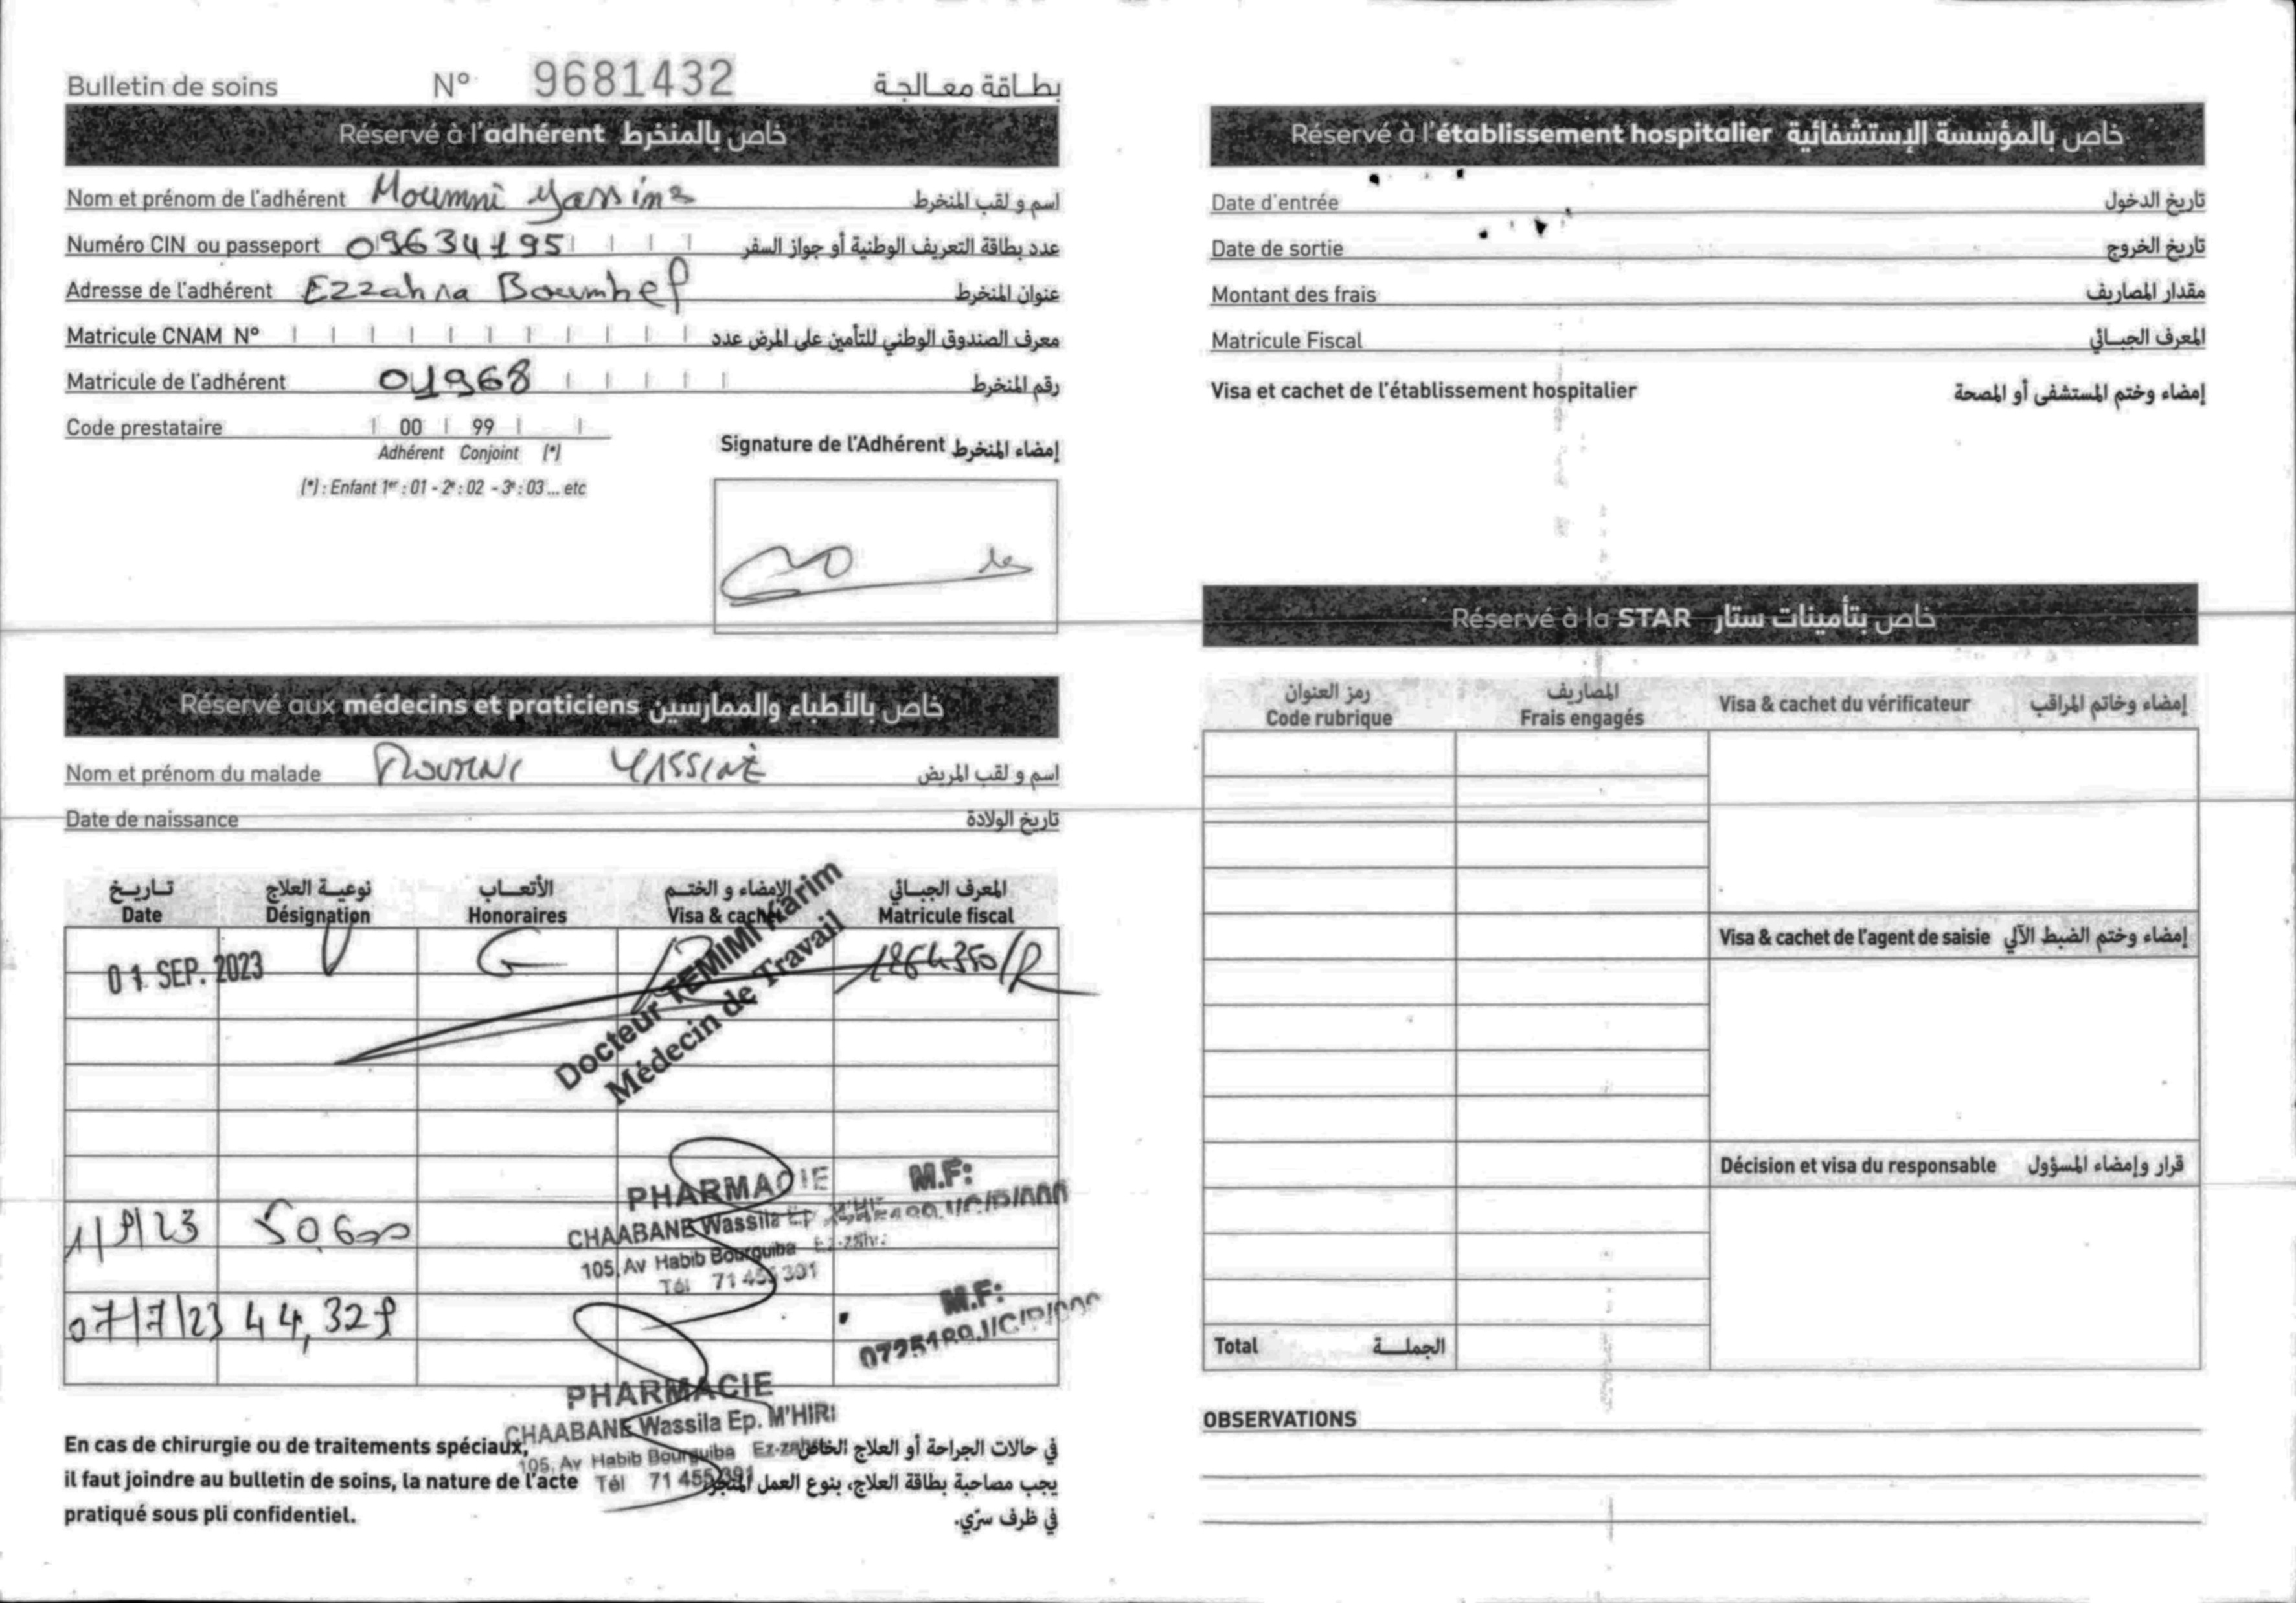 Bulletin de soins N° 9681432 بطاقة معالجة
Réservé à l'adhérent خاص بالمنخرط
Nom et prénom de l'adhérent Moumni Yassine اسم و لقب المنخرط
Numéro CIN ou passeport 09634195 عدد بطاقة التعريف الوطنية أو جواز السفر
Adresse de l'adhérent Ezzahra Boumhel عنوان المنخرط
Matricule CNAM N° معرف الصندوق الوطني للتأمين على المرض عدد
Matricule de l'adhérent 01968 رقم المنخرط
Code prestataire 00 99
Adhérent Conjoint (*)
(*) : Enfant 1er : 01 - 2e : 02 - 3e : 03 ... etc
Signature de l'Adhérent إمضاء المنخرط
Réservé aux médecins et praticiens خاص بالأطباء والممارسين
Nom et prénom du malade MOUMNI YASSINE اسم و لقب المريض
Date de naissance تاريخ الولادة
تاريخ نوعية العلاج الأتعاب الإمضاء و الختم المعرف الجبائي
Date Désignation Honoraires Visa & cachet Matricule fiscal
01 SEP. 2023 V G 1264350/R
Docteur TEMIMI Karim
Médecin de Travail
1/9/23 50,600
PHARMACIE
CHAABANE Wassila Ep. M'HIRI
105, Av Habib Bourguiba Ez-zahra
Tél 71 455 391
M.F:
07/7/23 44,329
M.F:
PHARMACIE
CHAABANE Wassila Ep. M'HIRI
105, Av Habib Bourguiba Ez-zahra
Tél 71 455 391
En cas de chirurgie ou de traitements spéciaux,
il faut joindre au bulletin de soins, la nature de l'acte
pratiqué sous pli confidentiel.
في حالات الجراحة أو العلاج الخاص
يجب مصاحبة بطاقة العلاج، بنوع العمل المنجز
في ظرف سرّي.
Réservé à l'établissement hospitalier خاص بالمؤسسة الإستشفائية
Date d'entrée تاريخ الدخول
Date de sortie تاريخ الخروج
Montant des frais مقدار المصاريف
Matricule Fiscal المعرف الجبائي
Visa et cachet de l'établissement hospitalier إمضاء وختم المستشفى أو المصحة
Réservé à la STAR خاص بتأمينات ستار
رمز العنوان المصاريف
Code rubrique Frais engagés Visa & cachet du vérificateur إمضاء وخاتم المراقب
Visa & cachet de l'agent de saisie إمضاء وختم الضبط الآلي
Décision et visa du responsable قرار وإمضاء المسؤول
Total الجملة
OBSERVATIONS